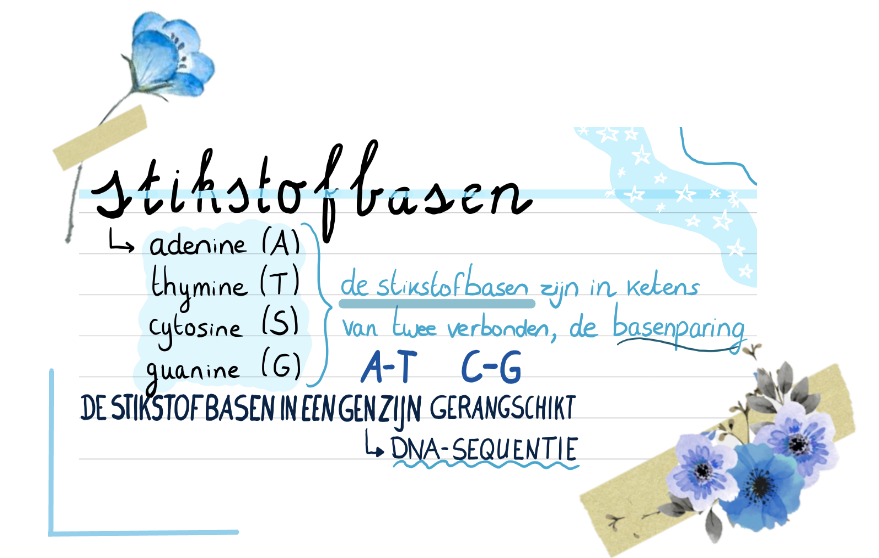 stikstofbasen
↳ adenine (A)
thymine (T)
cytosine (S)
guanine (G)
de stikstofbasen zijn in ketens
van twee verbonden, de basenparing
A-T C-G
DE STIKSTOFBASEN IN EEN GEN ZIJN GERANGSCHIKT
↳ DNA-SEQUENTIE